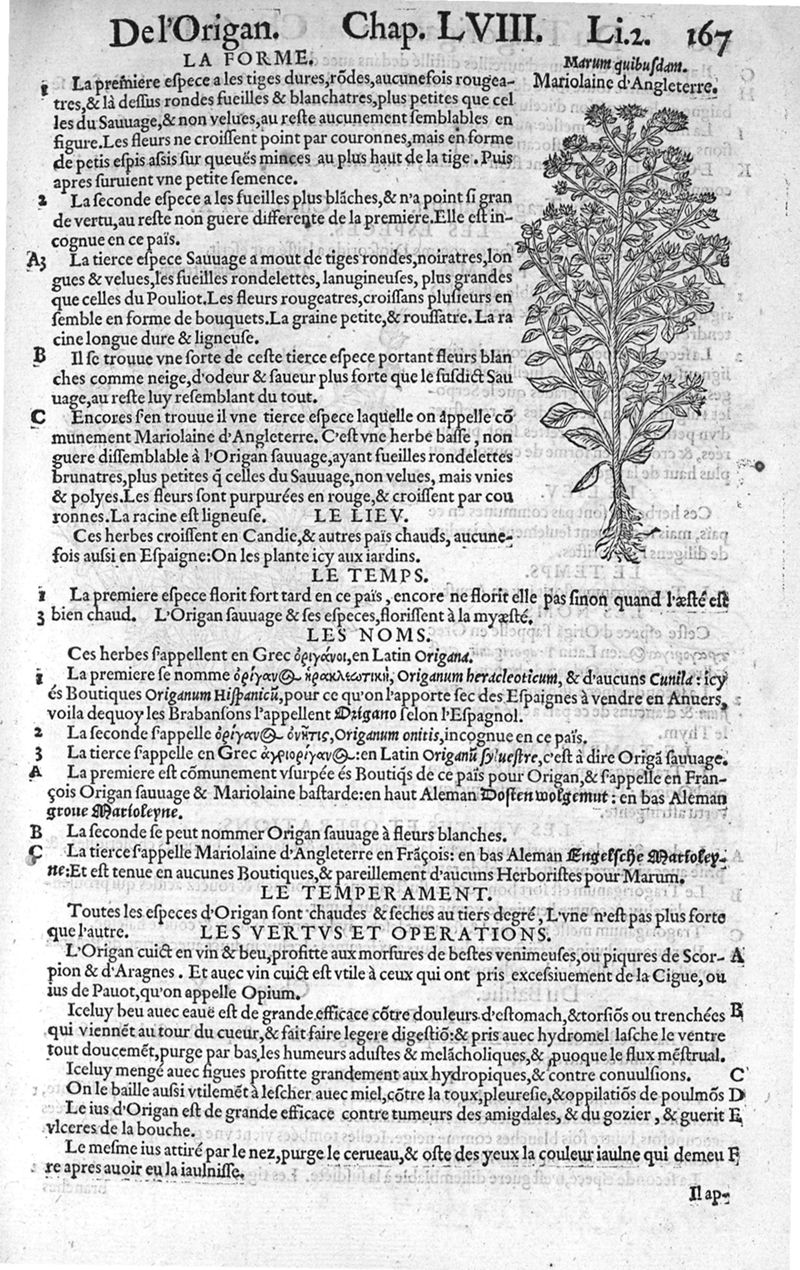 De l'Origan. Chap. LVIII. Li.2. 167
LA FORME.
Marum quibusdam.
Mariolaine d'Angleterre.
1 La premiere espece a les tiges dures, rõdes, aucunefois rougea-
tres, & là dessus rondes fueilles & blanchatres, plus petites que cel
les du Sauuage, & non velues, au reste aucunement semblables en
figure. Les fleurs ne croissent point par couronnes, mais en forme
de petis espis assis sur queuës minces au plus haut de la tige. Puis
apres suruient vne petite semence.
2 La seconde espece a les fueilles plus blãches, & n'a point si gran
de vertu, au reste non guere differente de la premiere. Elle est in-
cognue en ce païs.
A3 La tierce espece Sauuage a mout de tiges rondes, noiratres, lon
gues & velues, les fueilles rondelettes, lanugineuses, plus grandes
que celles du Pouliot. Les fleurs rougeatres, croissans plusieurs en
semble en forme de bouquets. La graine petite, & roussatre. La ra
cine longue dure & ligneuse.
B Il se trouue vne sorte de ceste tierce espece portant fleurs blan
ches comme neige, d'odeur & saueur plus forte que le susdict Sau
uage, au reste luy resemblant du tout.
C Encores s'en trouue il vne tierce espece laquelle on appelle cõ
munement Mariolaine d'Angleterre. C'est vne herbe basse, non
guere dissemblable à l'Origan sauuage, ayant fueilles rondelettes
brunatres, plus petites q̃ celles du Sauuage, non velues, mais vnies
& polyes. Les fleurs sont purpurées en rouge, & croissent par cou
ronnes. La racine est ligneuse. LE LIEV.
Ces herbes croissent en Candie, & autres païs chauds, aucune-
fois aussi en Espaigne: On les plante icy aux iardins.
LE TEMPS.
1 La premiere espece florit fort tard en ce païs, encore ne florit elle pas sinon quand l'æsté est
3 bien chaud. L'Origan sauuage & ses especes, florissent à la myæsté.
LES NOMS.
Ces herbes s'appellent en Grec ὀριγάνοι, en Latin Origana.
1 La premiere se nomme ὀρίγανος ἡρακλεωτικὴ, Origanum heracleoticum, & d'aucuns Cunila: icy
és Boutiques Origanum Hispanicũ, pour ce qu'on l'apporte sec des Espaignes à vendre en Anuers,
voila dequoy les Brabansons l'appellent Origano selon l'Espagnol.
2 La seconde s'appelle ὀρίγανος ὀνῆτις, Origanum onitis, incognue en ce païs.
3 La tierce s'appelle en Grec ἀγριορίγανος: en Latin Origanũ syluestre, c'est à dire Origã sauuage.
A La premiere est cõmunement vsurpée és Boutiq̃s de ce païs pour Origan, & s'appelle en Fran-
çois Origan sauuage & Mariolaine bastarde: en haut Aleman Dosten wolgemut: en bas Aleman
groue Marioleyne.
B La seconde se peut nommer Origan sauuage à fleurs blanches.
C La tierce s'appelle Mariolaine d'Angleterre en Frãçois: en bas Aleman Engelsche Marioley-
ne: Et est tenue en aucunes Boutiques, & pareillement d'aucuns Herboristes pour Marum.
LE TEMPERAMENT.
Toutes les especes d'Origan sont chaudes & seches au tiers degré, L'vne n'est pas plus forte
que l'autre. LES VERTVS ET OPERATIONS.
L'Origan cuict en vin & beu, profitte aux morsures de bestes venimeuses, ou piqures de Scor- A
pion & d'Aragnes. Et auec vin cuict est vtile à ceux qui ont pris excessiuement de la Cigue, ou
ius de Pauot, qu'on appelle Opium.
Iceluy beu auec eauë est de grande efficace cõtre douleurs d'estomach, & torsiõs ou trenchées B
qui viennẽt au tour du cueur, & fait faire legere digestiõ: & pris auec hydromel lasche le ventre
tout doucemẽt, purge par bas, les humeurs adustes & melãcholiques, & puoque le flux mẽstrual.
Iceluy mengé auec figues profitte grandement aux hydropiques, & contre conuulsions. C
On le baille aussi vtilemẽt à lescher auec miel, cõtre la toux, pleuresie, & oppilatiõs de poulmõs D
Le ius d'Origan est de grande efficace contre tumeurs des amigdales, & du gozier, & guerit E
vlceres de la bouche.
Le mesme ius attiré par le nez, purge le cerueau, & oste des yeux la couleur iaulne qui demeu F
re apres auoir eu la iaulnisse.
Il ap-